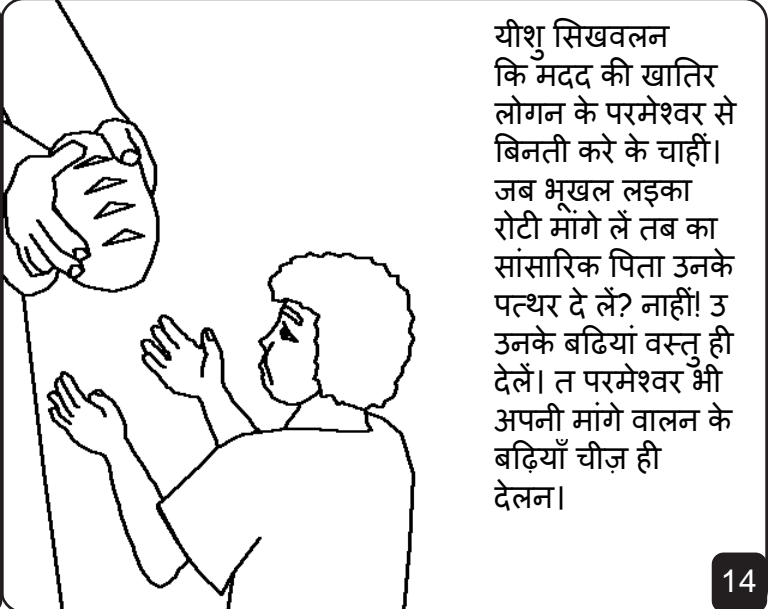 यीशु सिखवलन
कि मदद की खातिर
लोगन के परमेश्वर से
बिनती करे के चाहीं।
जब भूखल लइका
रोटी मांगे लें तब का
सांसारिक पिता उनके
पत्थर दे लें? नाहीं! उ
उनके बढियां वस्तु ही
देलें। त परमेश्वर भी
अपनी मांगे वालन के
बढ़ियाँ चीज़ ही
देलन।
14